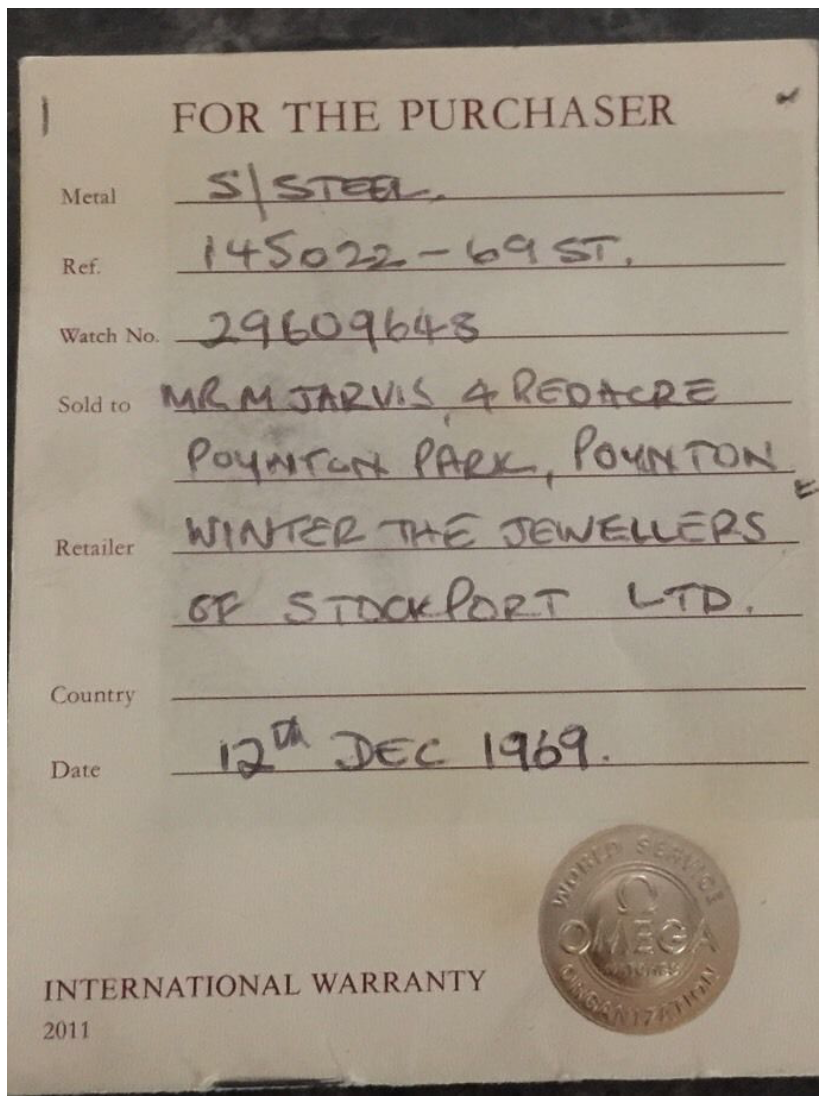 FOR THE PURCHASER
Metal S/STEEL.
Ref. 145022-69 ST.
Watch No. 29609648
Sold to MR M JARVIS, 4 REDACRE
POYNTON PARK, POYNTON
Retailer WINTER THE JEWELLERS
OF STOCKPORT LTD.
Country
Date 12TH DEC 1969.
WORLD SERVICE
Ω
OMEGA
ORGANIZATION
INTERNATIONAL WARRANTY
2011